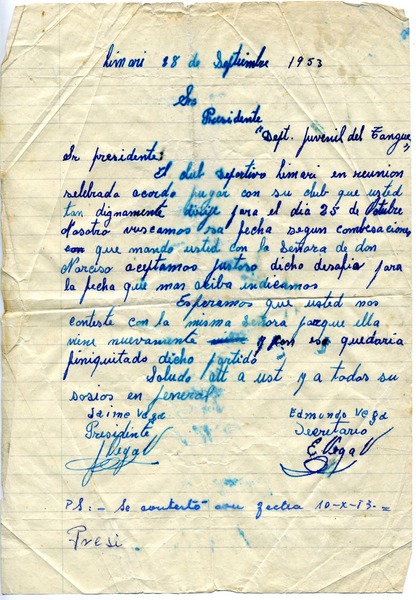 Limari 28 de Septiembre 1953
Sr
Presidente
"Dept. Juvenil del Tangue"
Sr presidente:
El club Deportivo Limari en reunion
selebrada acordo jugar con su club que usted
tan dignamente dirije para el dia 25 de Octubre
Nosotro vuscamos esa fecha segun combesaciones
que mando usted con la señora de don
Narciso aceptamos justoso dicho desafio para
la fecha que mas ariba indicamos
Esperamos que usted nos
conteste con la misma señora porque ella
viene nuevamente y con eso quedaria
finiquitado dicho partido
Saludo att a ust y a todos su
sosios en jeneral
Jaime Vega
Edmundo Vega
Presidente
Secretario
J Vega V
E. Vega V
PS: - Se contestó con fecha 10-X-53.=
Presi